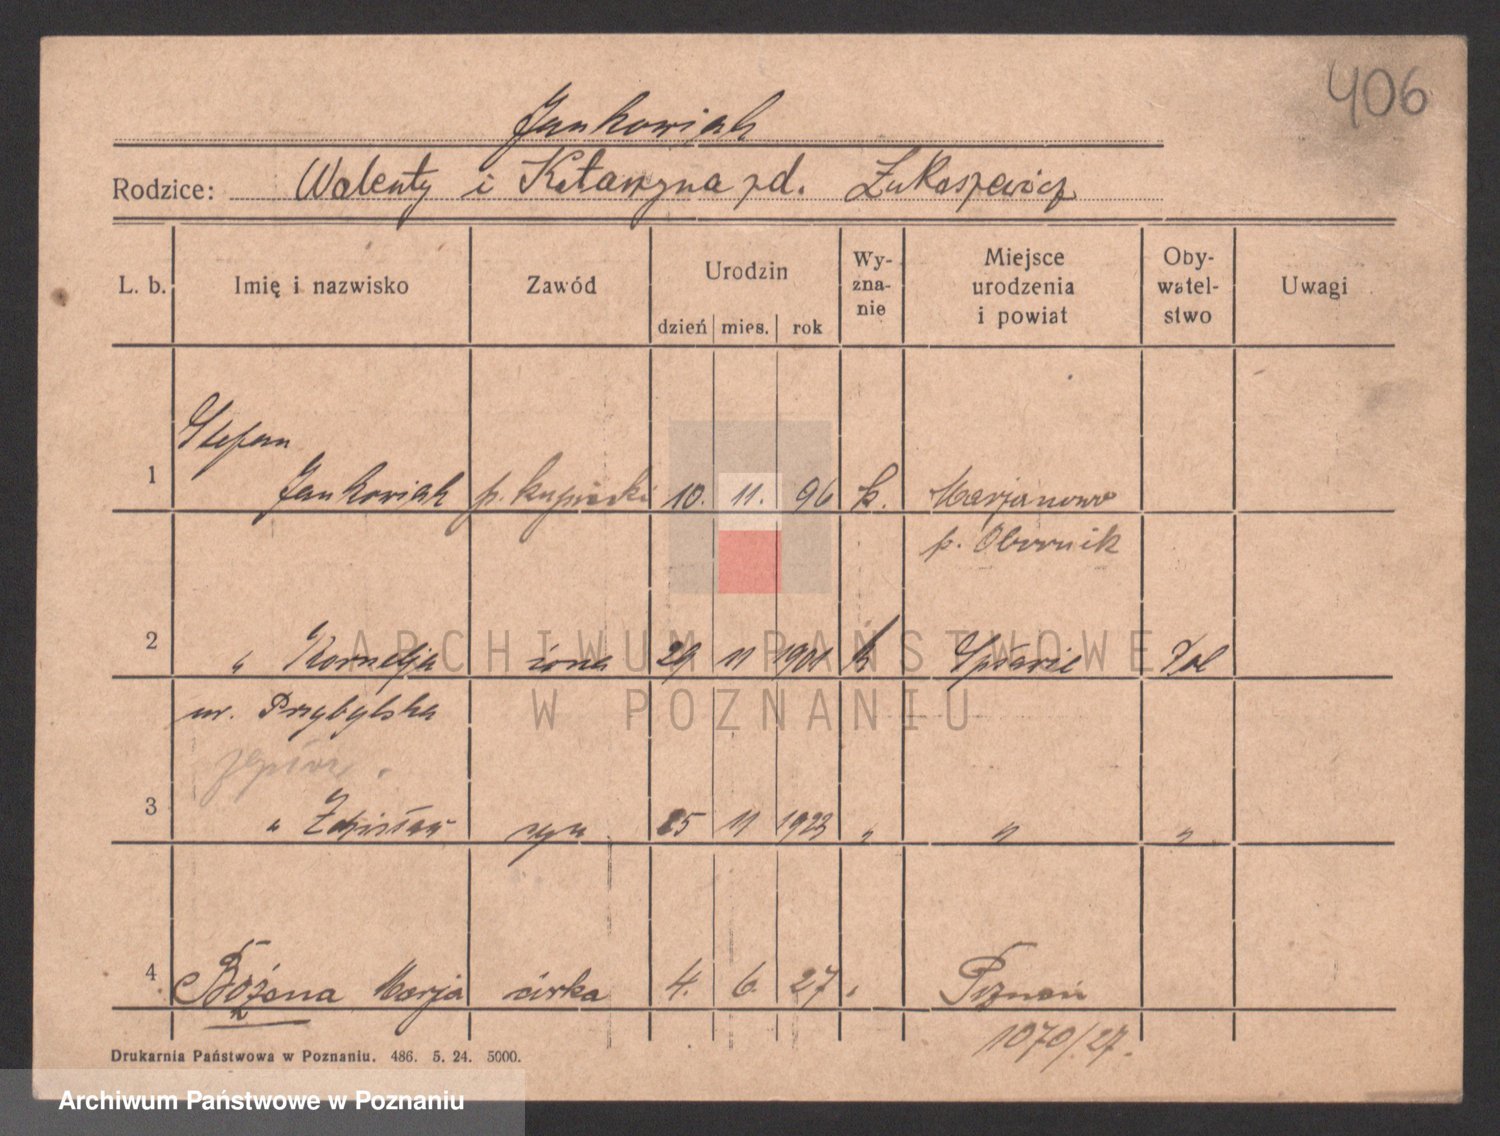 406
Jankowiak
Rodzice: Walenty i Katarzyna zd. Łukaszewicz
L. b. Imię i nazwisko Zawód Urodzin dzień mies. rok Wy-zna-nie Miejsce urodzenia i powiat Oby-watel-stwo Uwagi
Stefan
1 Jankowiak p. kupiecki 10. 11. 96 k. Marjanowo
p. Obornik
2 " Kornelja żona 29 11 1901 k Pol
ur. Przybylska
3 " Zdzisław syn 25 11 1923 " " "
4 Bożena Marja córka 4. 6. 27 . Poznań
1070/27.
Drukarnia Państwowa w Poznaniu. 486. 5. 24. 5000.
ARCHIWUM PAŃSTWOWE
W POZNANIU
Archiwum Państwowe w Poznaniu